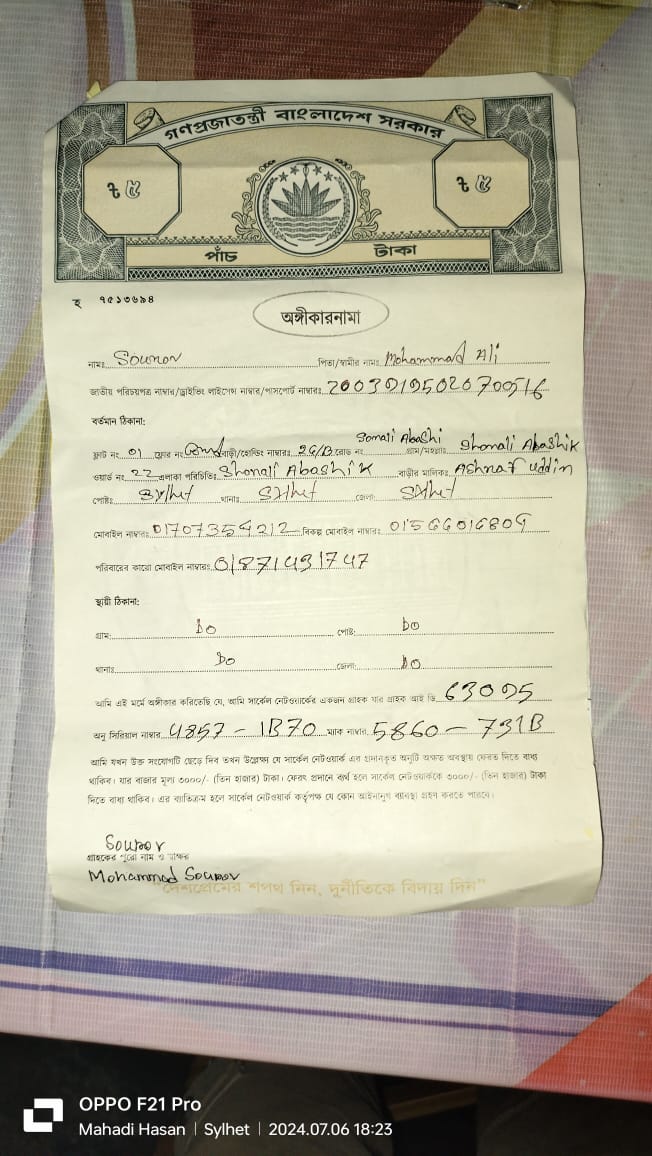 গণপ্রজাতন্ত্রী বাংলাদেশ সরকার
৳ ৫ ৳ ৫
পাঁচ টাকা
হ ৭৫১৩৬৯৪
অঙ্গীকারনামা
নামঃ Sounov পিতা/স্বামীর নামঃ Mohammad Ali
জাতীয় পরিচয়পত্র নাম্বার/ড্রাইভিং লাইসেন্স নাম্বার/পাসপোর্ট নাম্বারঃ
বর্তমান ঠিকানা:
ফ্লাট নং 01 ফ্লোর নং বাড়ী/হোল্ডিং নাম্বারঃ 2G/B রোড নং Somali Abashi গ্রাম/মহল্লাঃ Shonali Abashik
ওয়ার্ড নং 22 এলাকা পরিচিতিঃ Shonali Abashik বাড়ীর মালিকঃ Ashraf uddin
পোষ্টঃ Sylhet থানাঃ Sylhet জেলা Sylhet
মোবাইল নাম্বারঃ 01707354212 বিকল্প মোবাইল নাম্বারঃ
পরিবারের কারো মোবাইল নাম্বারঃ 01871431747
স্থায়ী ঠিকানা:
গ্রাম: Do পোষ্ট: Do
থানাঃ Do জেলা: Do
আমি এই মর্মে অঙ্গীকার করিতেছি যে, আমি সার্কেল নেটওয়ার্কের একজন গ্রাহক যার গ্রাহক আই ডি 63095
অনু সিরিয়াল নাম্বার 4857-1B70 ম্যাক নাম্বার 5860-731B
আমি যখন উক্ত সংযোগটি ছেড়ে দিব তখন উল্লেখ্য যে সার্কেল নেটওয়ার্ক এর প্রদানকৃত অনুটি অক্ষত অবস্থায় ফেরত দিতে বাধ্য
থাকিব। যার বাজার মূল্য ৩০০০/- (তিন হাজার) টাকা। ফেরৎ প্রদানে ব্যর্থ হলে সার্কেল নেটওয়ার্ককে ৩০০০/- (তিন হাজার) টাকা
দিতে বাধ্য থাকিব। এর ব্যতিক্রম হলে সার্কেল নেটওয়ার্ক কর্তৃপক্ষ যে কোন আইনানুগ ব্যবস্থা গ্রহণ করতে পারবে।
Sounov
গ্রাহকের পুরো নাম ও স্বাক্ষর
Mohammad Sounov
"দেশপ্রেমের শপথ নিন, দুর্নীতিকে বিদায় দিন"
OPPO F21 Pro
Mahadi Hasan | Sylhet | 2024.07.06 18:23